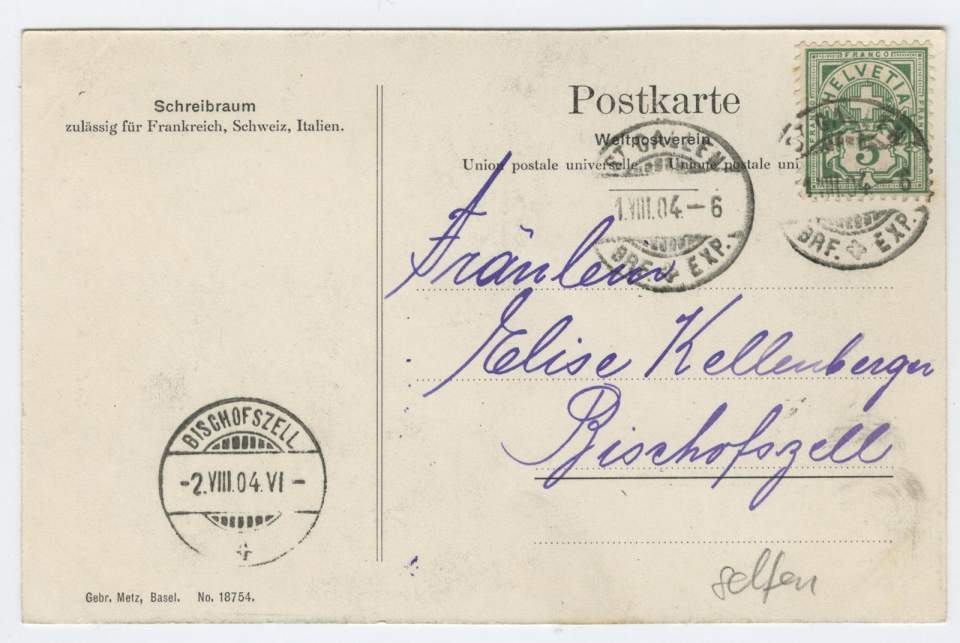 Schreibraum
zulässig für Frankreich, Schweiz, Italien.
Postkarte
Weltpostverein
Union postale universelle. Unione postale uni
FRANCO
HELVETIA
5
ST. GALLEN
1.VIII.04.–6
BRF. EXP.
ST. GALLEN
1.VIII.04.–6
BRF. EXP.
Fräulein
Elise Kellenberger
Bischofszell
BISCHOFSZELL
-2.VIII.04.VI-
Gebr. Metz, Basel. No. 18754.
selten